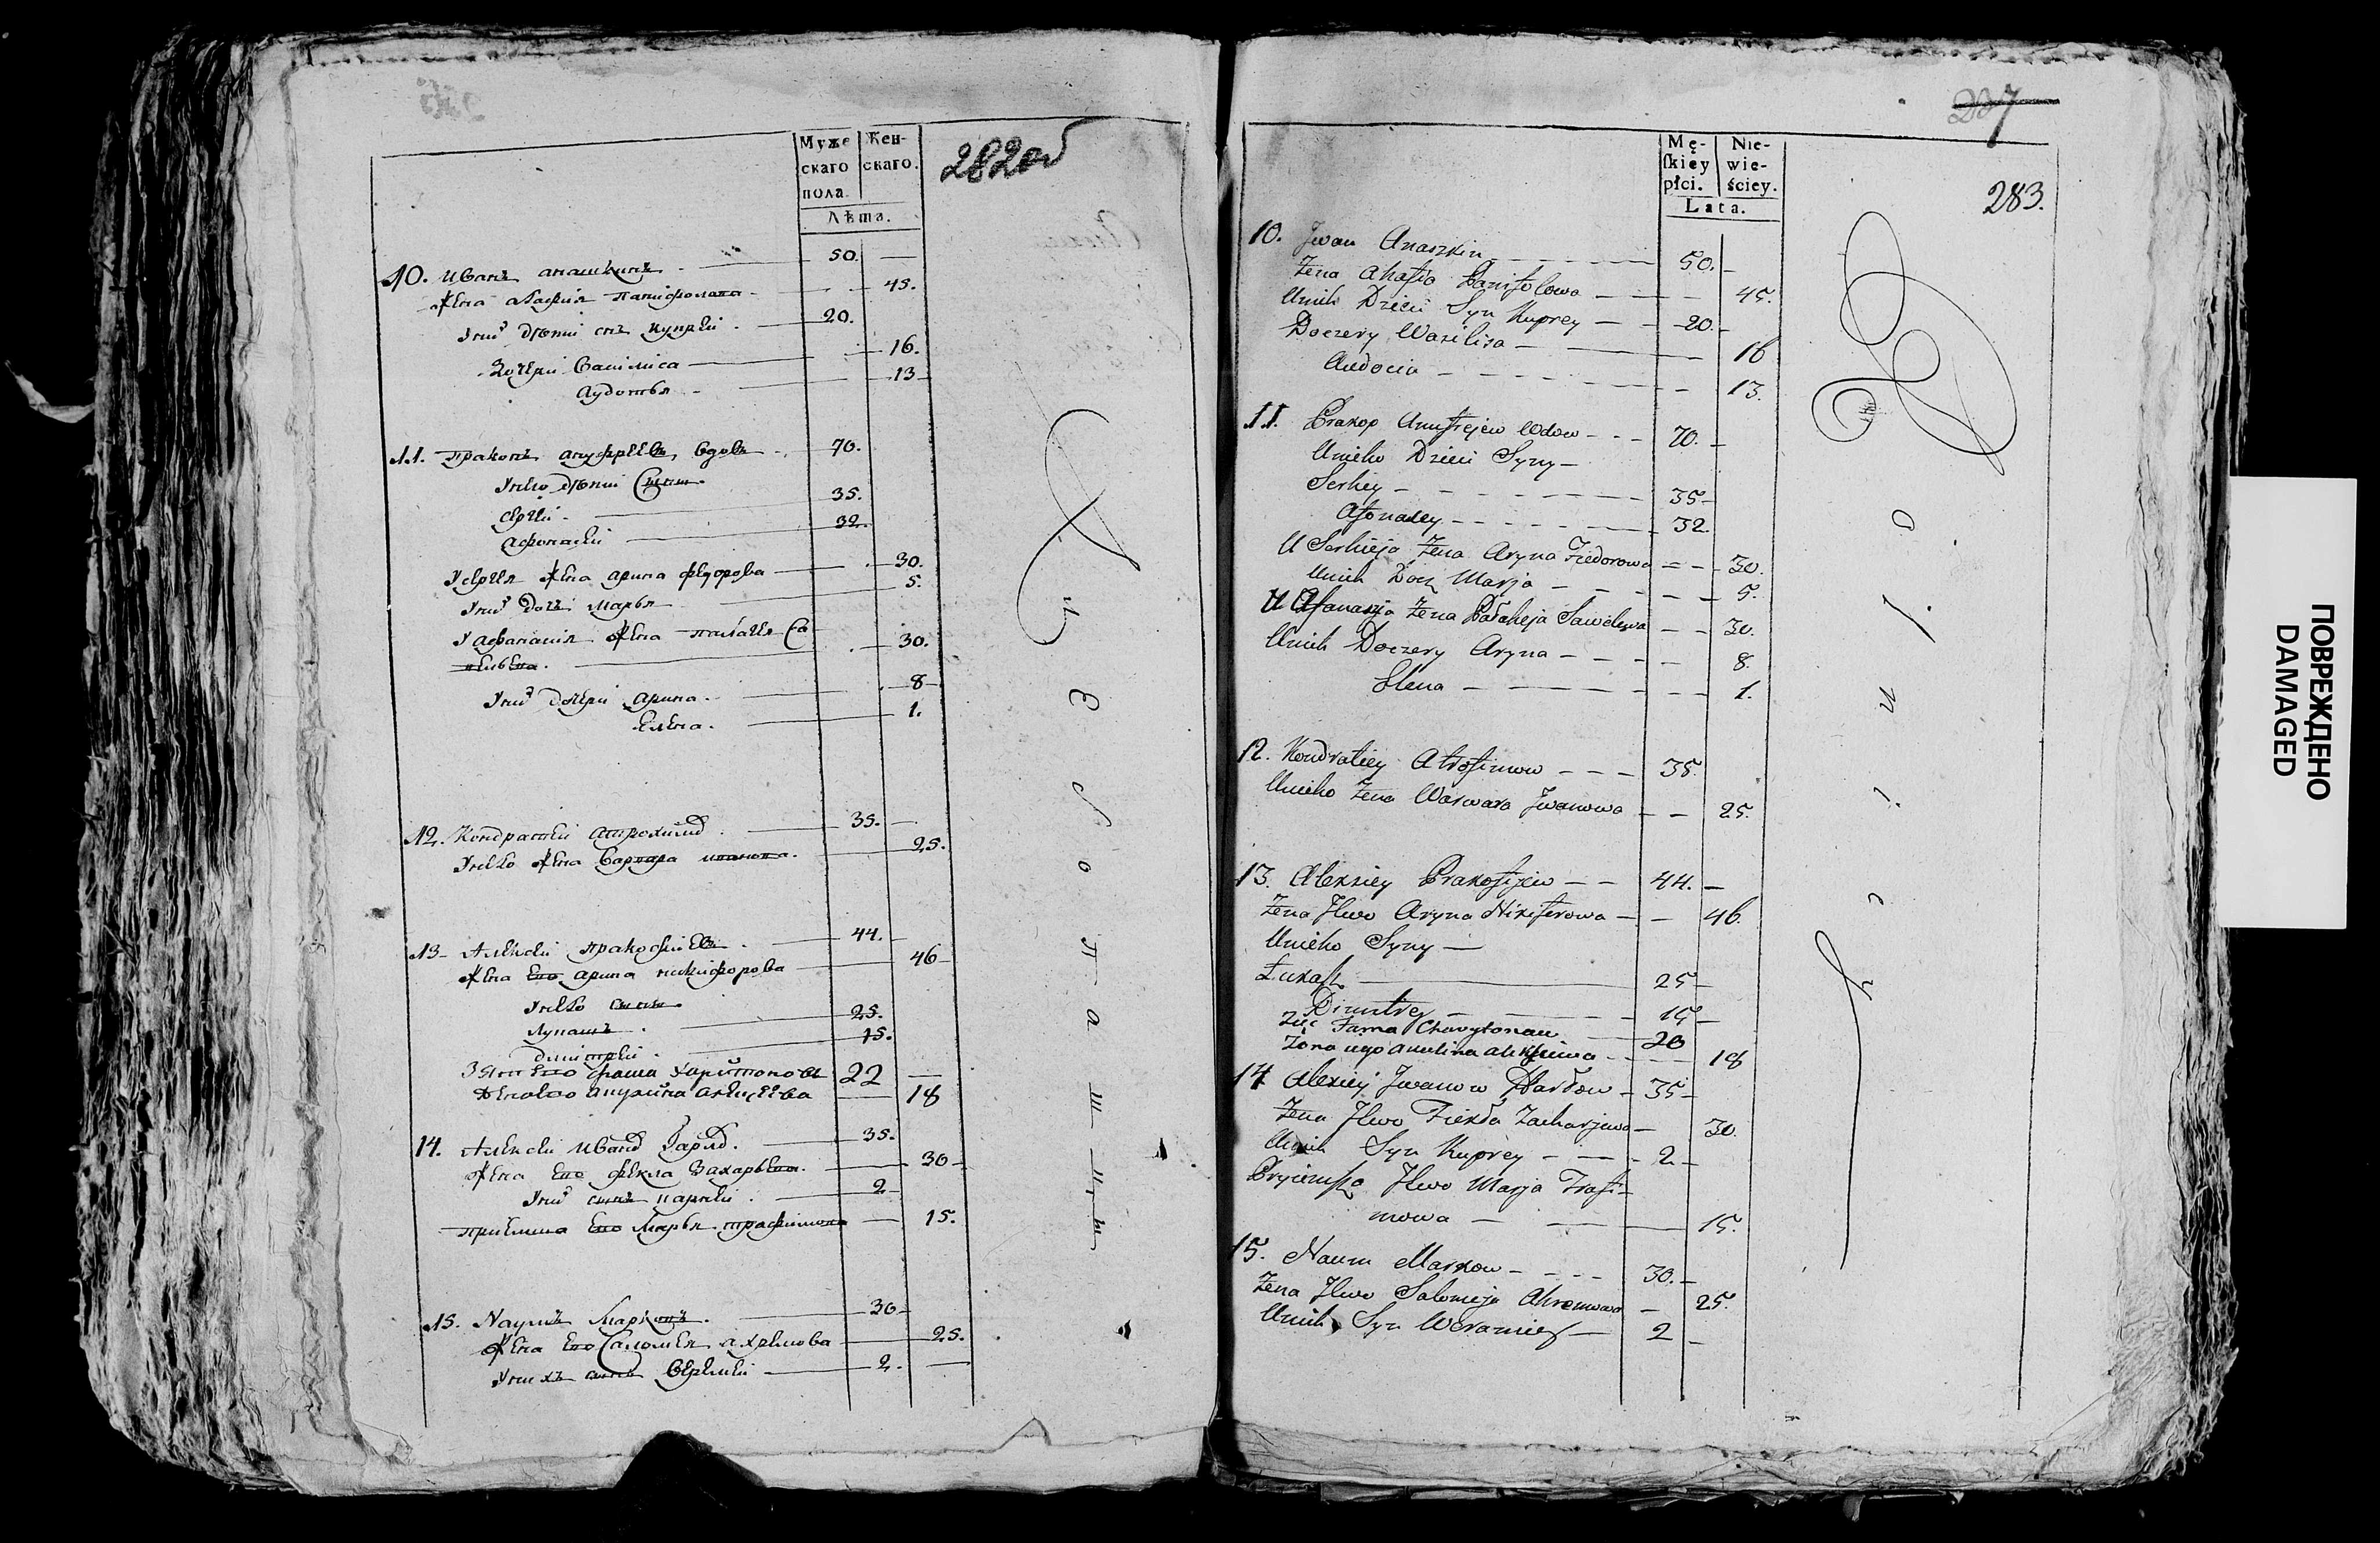 Муже
скаго
пола.
Жен-
скаго.
Лѣта.
282 об
10. Иванъ анашкинъ. 50.
Жена агафия панифилова 45.
У них дѣти сынъ купрей. 20.
Дочери Василиса 16.
Аудотья 13
11. Пракопъ ануфреевъ, вдовъ 70.
У нево дѣти Сыны
Сергей. 35.
Афонасей 32.
У Сергея жена арина федорова 30.
У них дочь Марья 5.
У афанасия жена палагея Са
вельева. 30.
У них дочери арина. 8
Елена. 1.
12. Кондратей 35.
У нево жена Варвара иванова. 25.
13. Алексей Пракофиевъ. 44.
Жена ево арина никифорова 46
У нево сыны
Лукашъ. 25.
Димитрей. 15.
Зять ево фама харитоновъ 22
Жена ево акулина алексеева 18
14. Алексей Иванов 35.
Жена ево фекла Захарьева. 30
У них сынъ 2
Приемыша ево Марья трафимова 15.
15. Наумъ Марковъ. 30
Жена ево Саломея ахремова 25.
У нихъ сынъ Веремей 2.
Х
р
е
с
о
п
а
ш
ц
ы
237
283.
Mę-
ſkiey
płci.
Nie-
wie-
ściey.
Lata.
10. Jwan Anaszkin 50.
Żena Ahafia Panifilowa 45.
Unich Dzieci Syn Kuprey 20.
Doczery Wasilisa 16
Audocia 13.
11. Prakop Anufrejew Wdow 70.
Unieho Dzieci Syny
Serhiey 35
Afonasey 32.
U Serhieja Żena Aryna Fiedorowa 30.
Unich Docz Marja 5.
U Afanasja Żena Pałaheja Sawelewa 30.
Unich Doczery Aryna 8.
Elena 1.
12. Kondratiey Atrofimow 35.
Unieho Żena Warwara Jwanowa 25.
13. Alexiey Prakofijew 44.
Żena Jewo Aryna Nikiferowa 46.
Unieho Syny
Łukasz 25
Dimitrey 15
Zięć Fama Charytonau 20
Żona iego Akulina Alekſiewa 18
14 Alexiej Jwanow 35
Żena Jewo Fiekła Zacharjewa 30.
Unich Syn Kuprey 2
Pryiemysza Jewo Marja Trafi-
mowa 15.
15. Naum Markow 30.
Żena Jewo Salomeja Ahremowa 25.
Unich Syn Weramiey 2
R
o
l
n
i
c
y
ПОВРЕЖДЕНО
DAMAGED